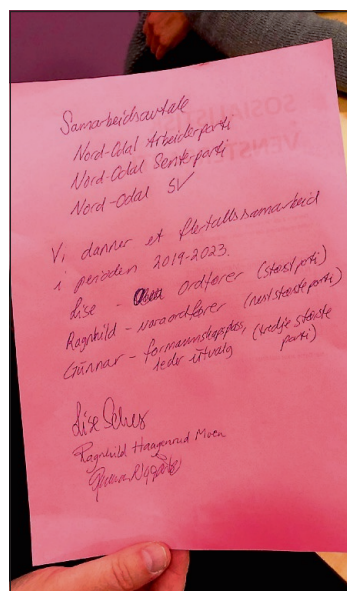 SOSIALISTISK
VENSTRE
Samarbeidsavtale
Nord-Odal Arbeiderparti
Nord-Odal Senterparti
Nord-Odal SV
Vi danner et flertallssamarbeid
i perioden 2019-2023.
Lise - Ordfører (størst parti)
Ragnhild - varaordfører (nest største parti)
Gunnar - formannskapsplass, (tredje største
leder utvalg parti)
Lise Selnes
Ragnhild Haagenrud Moen